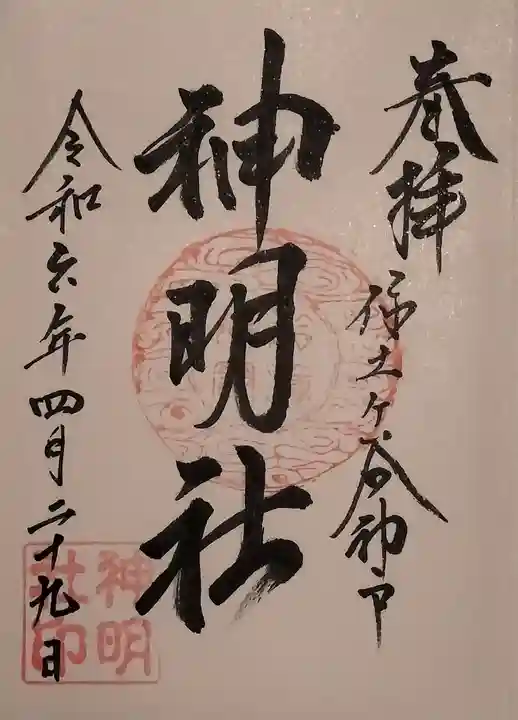 奉拝
保土ヶ谷神戸
神明社
令和六年四月二十九日
神明
社印